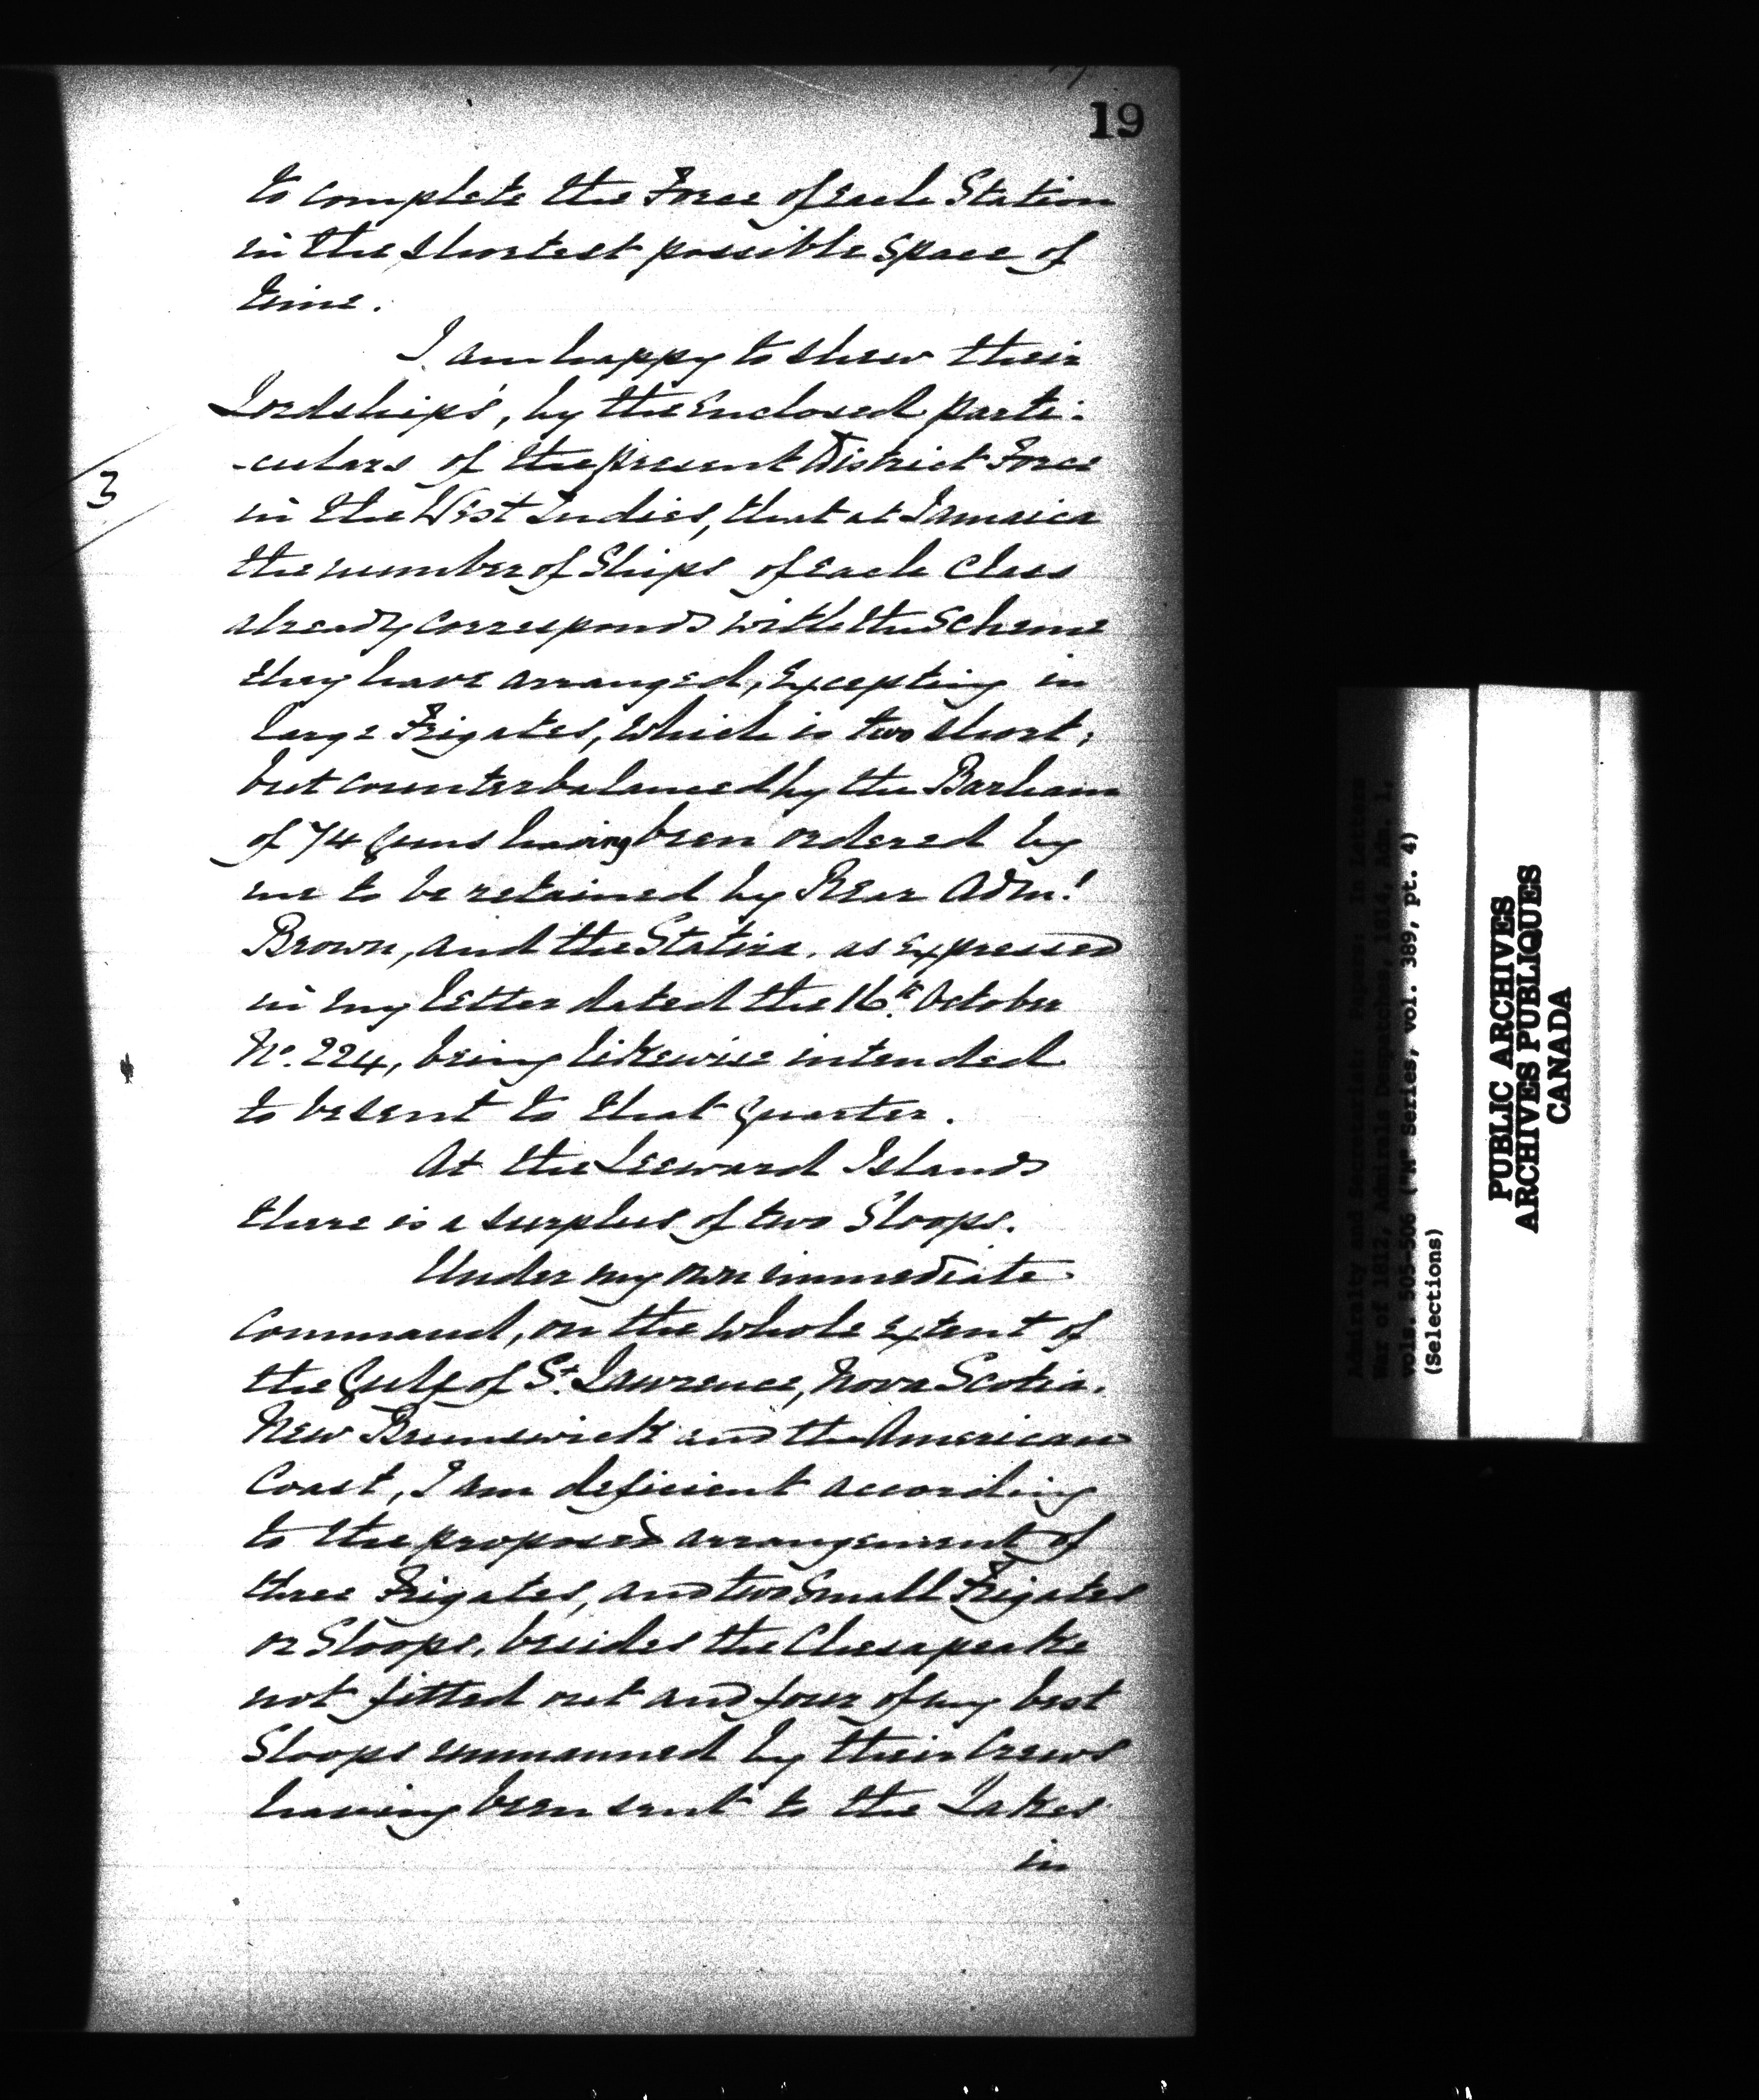 19
to complete the Force of each Station
in the shortest possible space of
time.
I am happy to shew their
Lordships', by the enclosed parti-
-culars of the present District Force
3
in the West Indies, that at Jamaica
the number of Ships of each Class
already corresponds with the Scheme
they have arranged, excepting in
large Frigates, which is two short;
but counterbalanced by the Barham
of 74 Guns having been ordered by
me to be retained by Rear Adml.
Brown, and the Statira, as expressed
in my letter dated the 16th October
No. 224, being likewise intended
to be sent to that quarter.
At the Leeward Islands
there is a surplus of two Sloops.
Under my own immediate
Command, on the whole extent of
the Gulf of St. Lawrence, Nova Scotia.
New Brunswick and the American
Coast, I am deficient according
to the proposed arrangement of
three Frigates, and two Small Frigates
or Sloops, besides the Chesapeake
not fitted out and four of my best
Sloops unmanned by their Crews
having been sent to the Lakes
in
Admiralty and Secretariat: Papers: In Letters
War of 1812, Admirals Despatches, 1814, Adm. 1,
vols. 505-506 ("M" Series, vol. 389, pt. 4)
(Selections)
PUBLIC ARCHIVES
ARCHIVES PUBLIQUES
CANADA